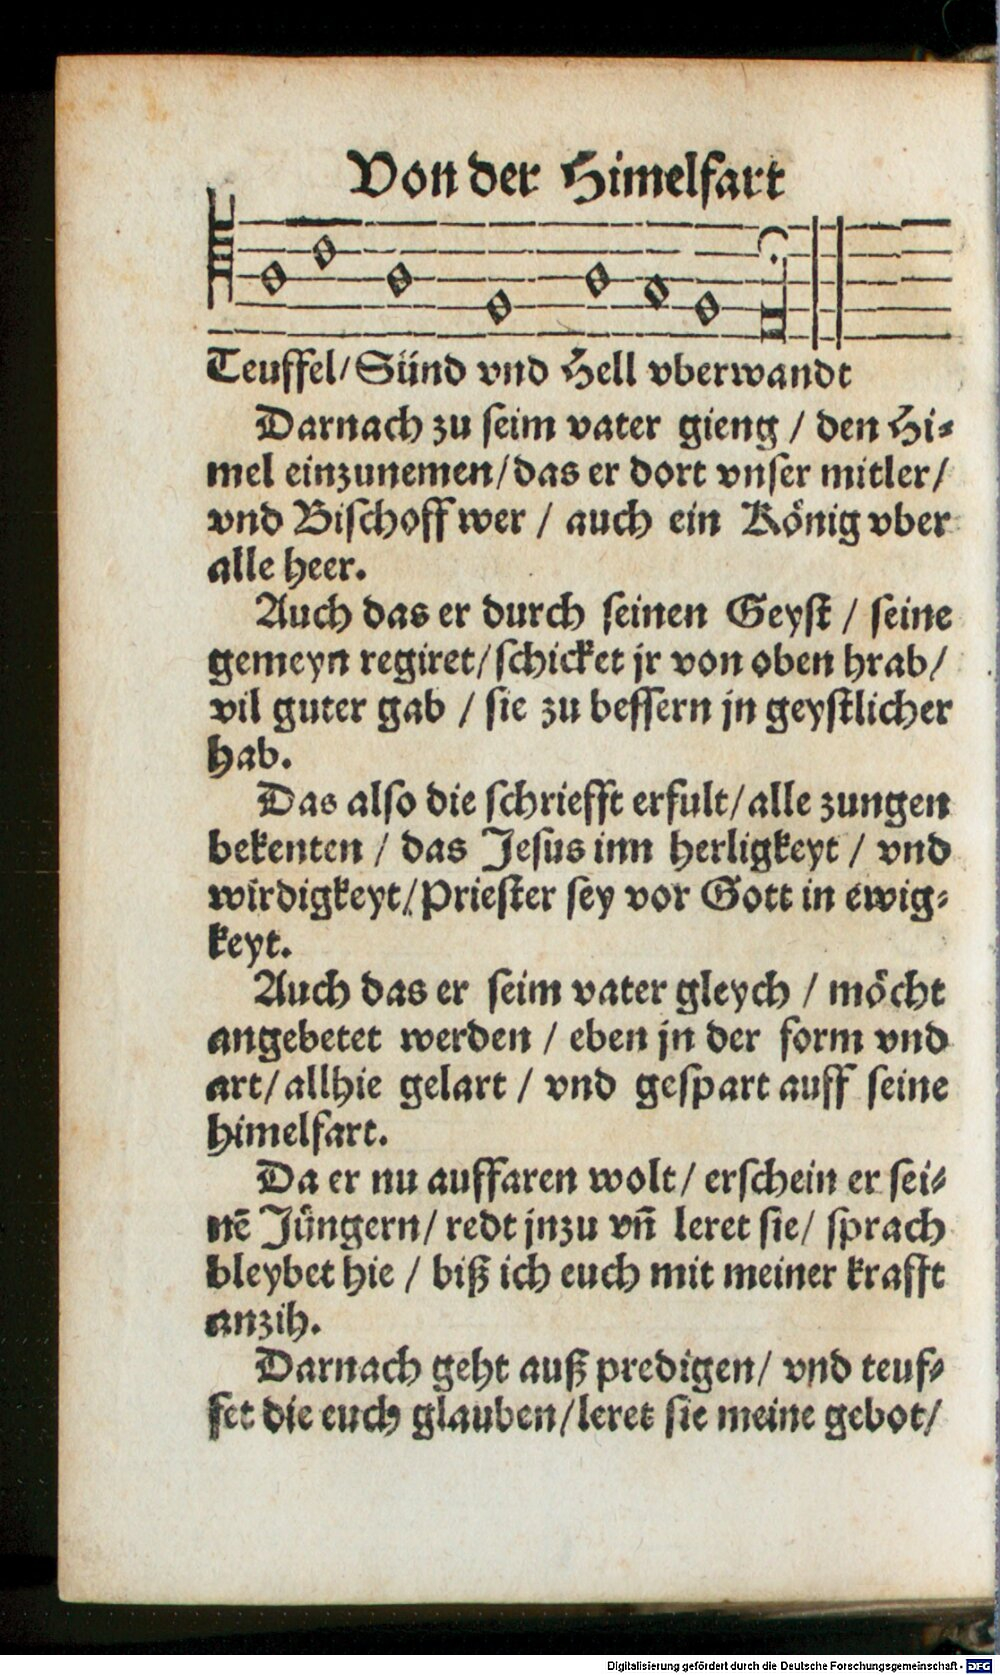 Von der Himelfart
Teuffel/Sünd vnd Hell vberwandt
Darnach zu seim vater gieng / den Hi-
mel einzunemen/das er dort vnser mitler/
vnd Bischoff wer / auch ein König vber
alle heer.
Auch das er durch seinen Geyst / seine
gemeyn regiret/schicket jr von oben hrab/
vil guter gab / sie zu bessern jn geystlicher
hab.
Das also die schriefft erfult/alle zungen
bekenten / das Jesus inn herligkeyt / vnd
wirdigkeyt/Priester sey vor Gott in ewig-
keyt.
Auch das er seim vater gleych / möcht
angebetet werden / eben jn der form vnd
art/allhie gelart / vnd gespart auff seine
himelfart.
Da er nu auffaren wolt/ erschein er sei-
nē Jüngern/ redt jnzu vn̄ leret sie/ sprach
bleybet hie / biß ich euch mit meiner krafft
anzih.
Darnach geht auß predigen/ vnd teuf-
fet die euch glauben/leret sie meine gebot/
Digitalisierung gefördert durch die Deutsche Forschungsgemeinschaft - DFG